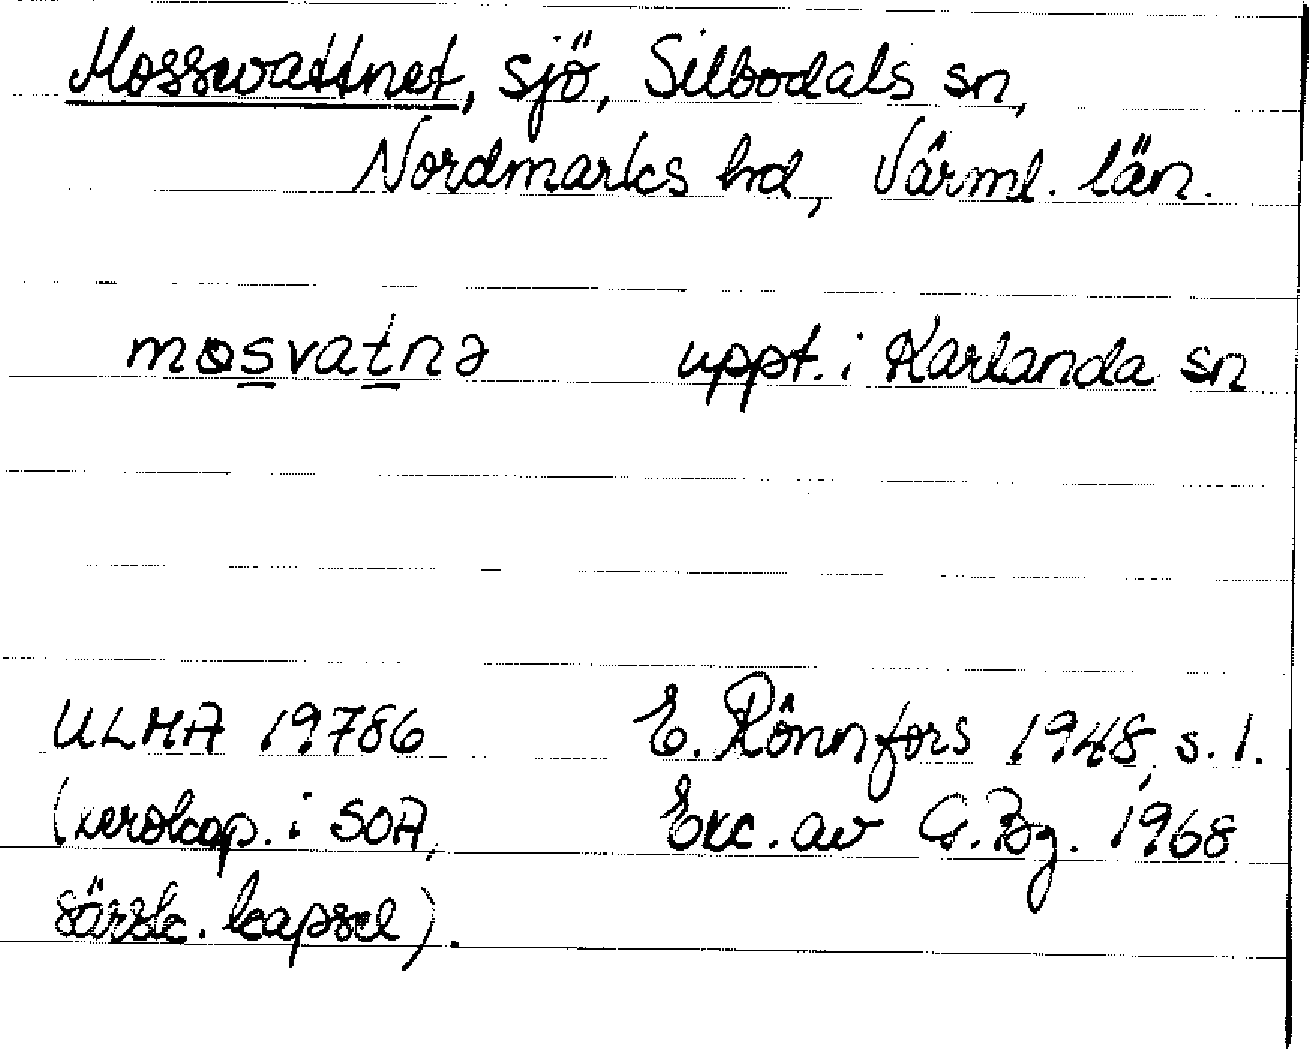 Mossvattnet, sjö, Silbodals sn,
Nordmarks hd, Värml. län.
mosvatnə uppt. i Karlanda sn
ULMA 19786 E. Rönnfors 1948, s. 1.
(xerokop. i SOA, Exc. av G. Bg. 1968
särsk. kapsel).